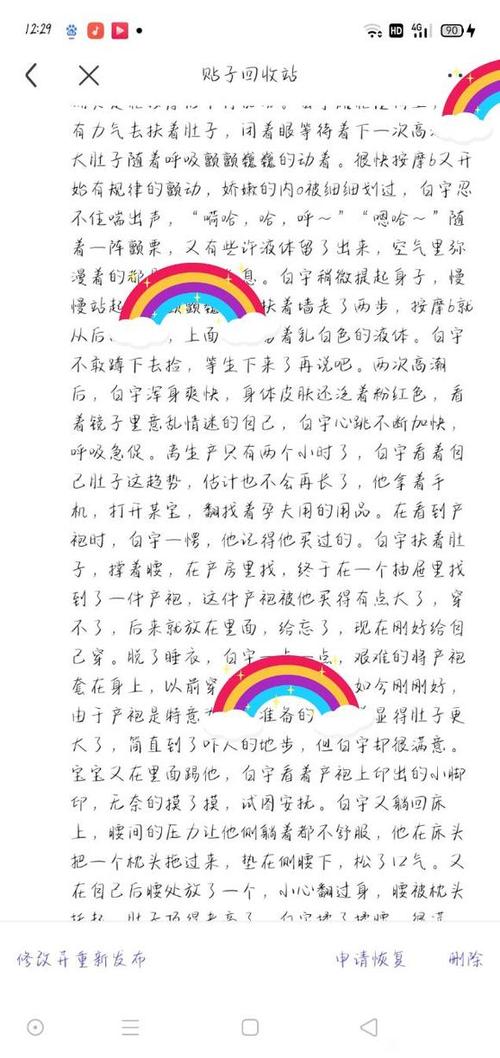 12:29
HD 4G 90
贴子回收站
有力气去扶着肚子，闭着眼等待着下一次高
大肚子随着呼吸颤颤巍巍的动着。很快按摩b又开
始有规律的颤动，娇嫩的内o被细细划过，白宇忍
不住喘出声，“啊哈，哈，呼～”“嗯哈～”随
着一阵颤栗，又有些许液体留了出来，空气里弥
漫着的都 息。白宇稍微提起身子，慢
慢站起 扶着墙走了两步，按摩b就
从后 ，上面 着乳白色的液体。白宇
不敢蹲下去捡，等生下来了再说吧。两次高潮
后，白宇浑身爽快，身体皮肤还泛着粉红色，看
着镜子里意乱情迷的自己，白宇心跳不断加快，
呼吸急促。离生产只有两个小时了，白宇看着自
己肚子这趋势，估计也不会再长了，他拿着手
机，打开某宝，翻找着孕夫用的用品。在看到产
袍时，白宇一愣，他记得他买过的。白宇扶着肚
子，撑着腰，在产房里找，终于在一个抽屉里找
到了一件产袍，这件产袍被他买得有点大了，穿
不了，后来就放在里面，给忘了，现在刚好给自
己穿。脱了睡衣，白宇一点一点，艰难的将产袍
套在身上，以前穿 如今刚刚好，
由于产袍是特意 准备的 显得肚子更
大了，简直到了吓人的地步，但白宇却很满意。
宝宝又在里面踢他，白宇看着产袍上印出的小脚
印，无奈的摸了摸，试图安抚。白宇又躺回床
上，腰间的压力让他侧躺着都不舒服，他在床头
把一个枕头拖过来，垫在侧腰下，松了口气。又
在自己后腰处放了一个，小心翻过身，腰被枕头
修改并重新发布 申请恢复 删除